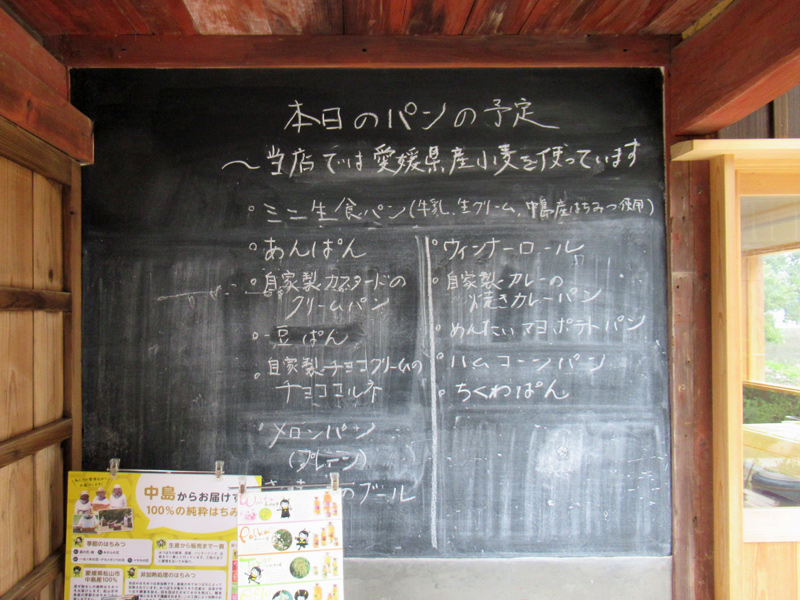 本日のパンの予定
～当店では愛媛県産小麦を使っています
ミニ生食パン(牛乳、生クリーム、中島産はちみつ使用)
あんぱん
自家製カスタードの
クリームパン
豆ぱん
自家製チョコクリームの
チョココルネ
メロンパン
(プレーン)
のブール
ウィンナーロール
自家製カレーの
焼きカレーパン
めんたいマヨポテトパン
ハムコーンパン
ちくわぱん
中島からお届けす
100%の純粋はちみ
季節のはちみつ
生産から販売まで一貫
愛媛県松山市
中島産100%
非加熱処理のはちみつ